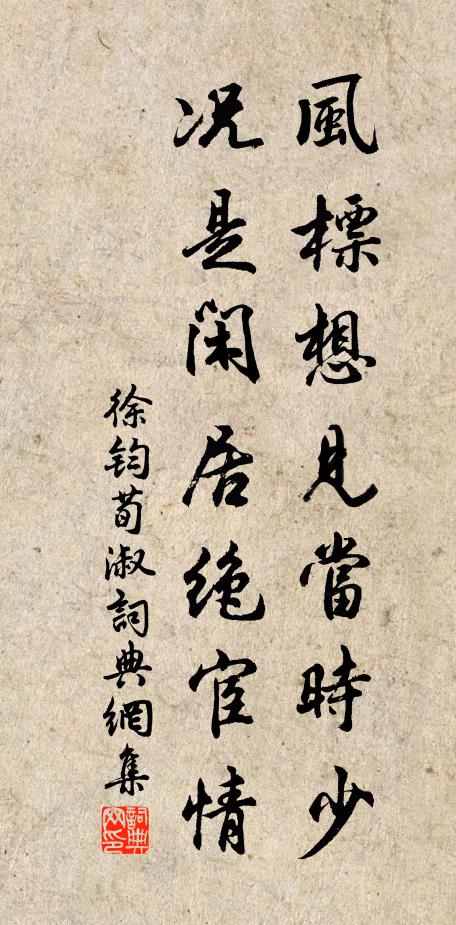 風標想見當時少
况是閑居絶宦情
徐鈞荀淑詞典網集
詞典網印